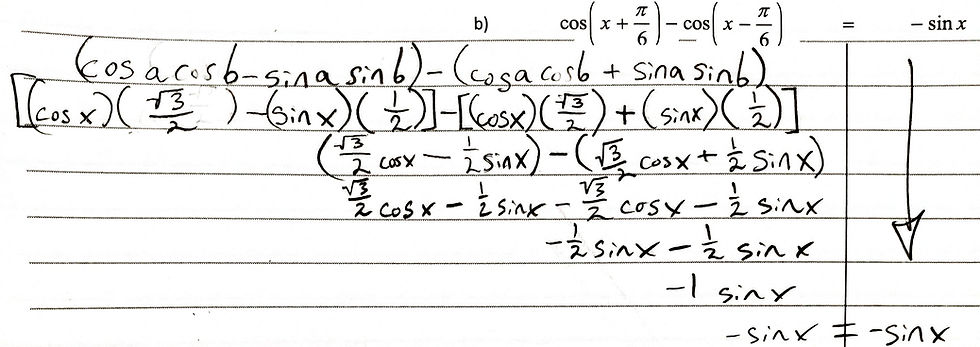 b) cos(x + π/6) − cos(x − π/6) = − sin x
(cos a cos b − sin a sin b) − (cos a cos b + sin a sin b)
[(cos x)(√3/2) − (sin x)(1/2)] − [(cos x)(√3/2) + (sin x)(1/2)]
(√3/2 cos x − 1/2 sin x) − (√3/2 cos x + 1/2 sin x)
√3/2 cos x − 1/2 sin x − √3/2 cos x − 1/2 sin x
−1/2 sin x − 1/2 sin x
−1 sin x
−sin x = −sin x